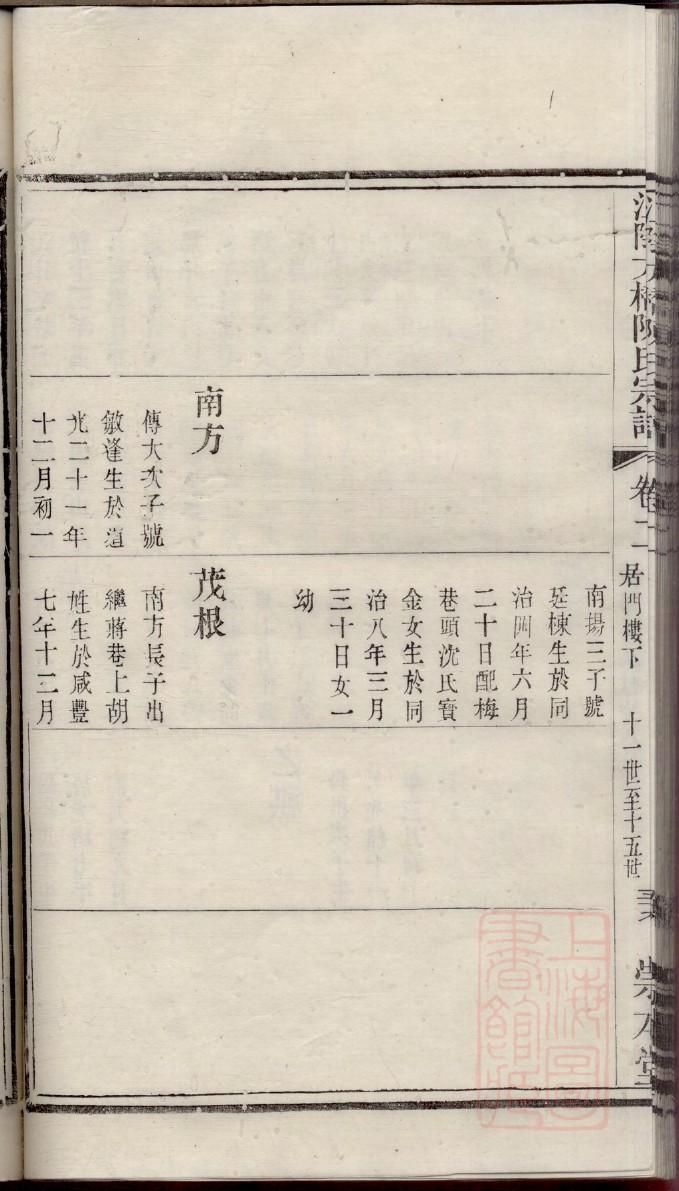 江陰方橋陳氏宗譜
卷二
居門樓下
十一世至十五世
崇本堂
南方
傳大次子號
敏逢生於道
光二十一年
十二月初一
南揚三子號
廷棟生於同
治四年六月
二十日配梅
巷頭沈氏寶
金女生於同
治八年三月
三十日女一
幼
茂根
南方長子出
繼蔣巷上胡
姓生於咸豐
七年十二月
上海圖
書館藏